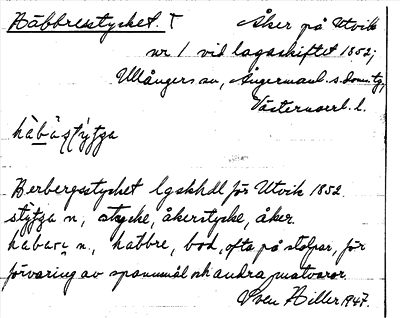 Häbbresstycket. T Åker på Utvik
nr 1 vid lagaskiftet 1852;
Ullångers sn, Ångermanl. s. doms. tg,
Västernorrl. l.
Berbergsstycket lgskhdl för Utvik 1852.
n, stycke, åkerstycke, åker.
n, habbre, bod, ofta på stolpar, för
förvaring av spannmål och andra matvaror.
Sven Hiller 1947.